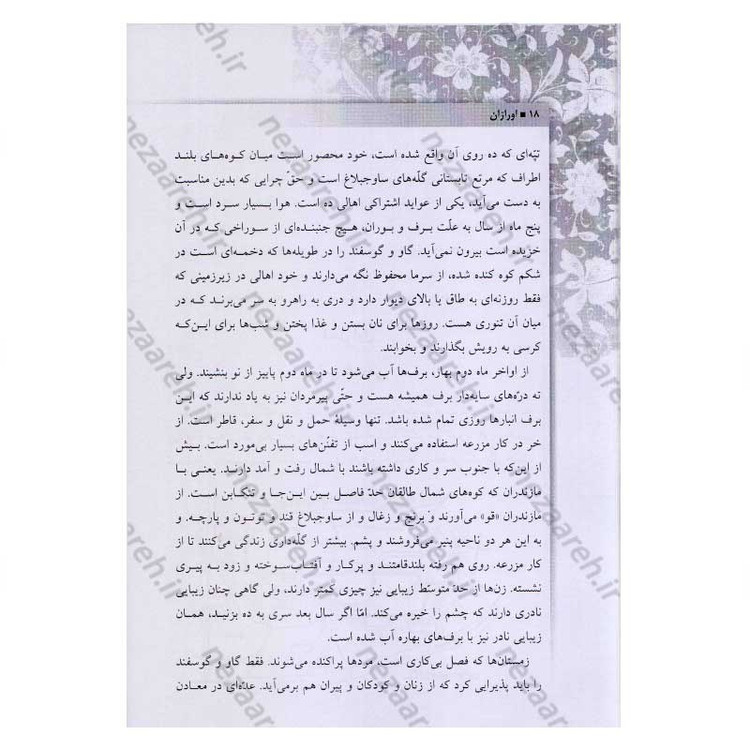 ۱۸ ■ اورازان
تپّه‌ای که ده روی آن واقع شده است، خود محصور است میان کوه‌های بلند
اطراف که مرتع تابستانی گلّه‌های ساوجبلاغ است و حقّ چرایی که بدین مناسبت
به دست می‌آید، یکی از عواید اشتراکی اهالی ده است. هوا بسیار سرد است و
پنج ماه از سال به علّت برف و بوران، هیچ جنبنده‌ای از سوراخی که در آن
خزیده است بیرون نمی‌آید. گاو و گوسفند را در طویله‌ها که دخمه‌ای است در
شکم کوه کنده شده، از سرما محفوظ نگه می‌دارند و خود اهالی در زیرزمینی که
فقط روزنه‌ای به طاق یا بالای دیوار دارد و دری به راهرو به سر می‌برند که در
میان آن تنوری هست. روزها برای نان بستن و غذا پختن و شب‌ها برای این‌که
کرسی به رویش بگذارند و بخوابند.
از اواخر ماه دوم بهار، برف‌ها آب می‌شود تا در ماه دوم پاییز از نو بنشیند. ولی
ته درّه‌های سایه‌دار برف همیشه هست و حتّی پیرمردان نیز به یاد ندارند که این
برف انبارها روزی تمام شده باشد. تنها وسیلهٔ حمل و نقل و سفر، قاطر است. از
خر در کار مزرعه استفاده می‌کنند و اسب از تفنّن‌های بسیار بی‌مورد است. بیش
از این‌که با جنوب سر و کاری داشته باشند با شمال رفت و آمد دارند. یعنی با
مازندران که کوه‌های شمال طالقان حدّ فاصل بین این‌جا و تنکابن است. از
مازندران «قو» می‌آورند و برنج و زغال و از ساوجبلاغ قند و توتون و پارچه. و
به این هر دو ناحیه پنیر می‌فروشند و پشم. بیشتر از گلّه‌داری زندگی می‌کنند تا از
کار مزرعه. روی هم رفته بلندقامتند و پرکار و آفتاب‌سوخته و زود به پیری
نشسته. زن‌ها از حدّ متوسّط زیبایی نیز چیزی کمتر دارند، ولی گاهی چنان زیبایی
نادری دارند که چشم را خیره می‌کند. امّا اگر سال بعد سری به ده بزنید، همان
زیبایی نادر نیز با برف‌های بهاره آب شده است.
زمستان‌ها که فصل بی‌کاری است، مردها پراکنده می‌شوند. فقط گاو و گوسفند
را باید پذیرایی کرد که از زنان و کودکان و پیران هم برمی‌آید. عدّه‌ای در معادن
nezaareh.ir
nezaareh.ir
nezaareh.ir
nezaareh.ir
nezaareh.ir
nezaareh.ir
nezaareh.ir
nezaareh.ir
nezaareh.ir